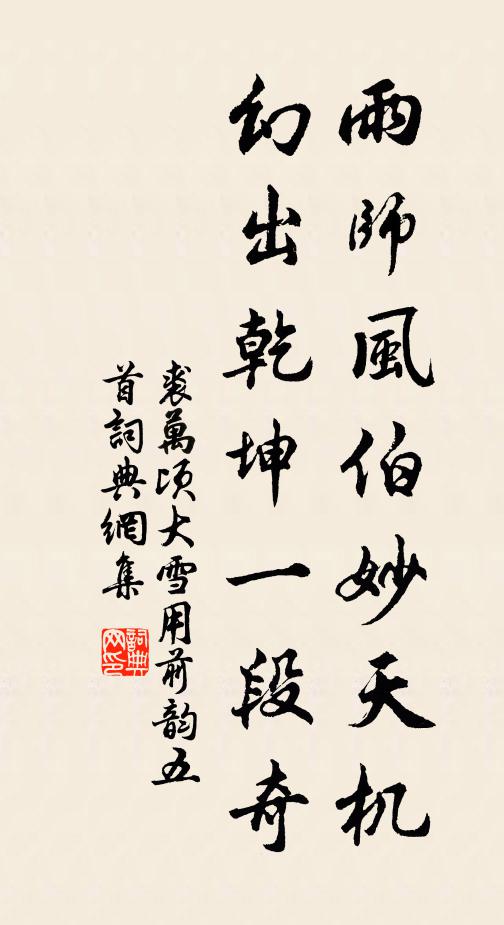 雨師風伯妙天机
幻出乾坤一段奇
裘萬頃大雪用前韵五
首詞典網集
詞典网印